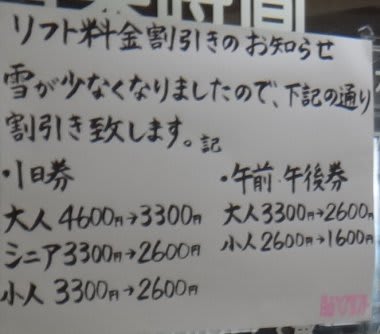 リフト料金割引きのお知らせ
雪が少なくなりましたので、下記の通り
割引き致します。
記
・1日券
大人 4600円→3300円
シニア 3300円→2600円
小人 3300円→2600円
・午前、午後券
大人 3300円→2600円
小人 2600円→1600円